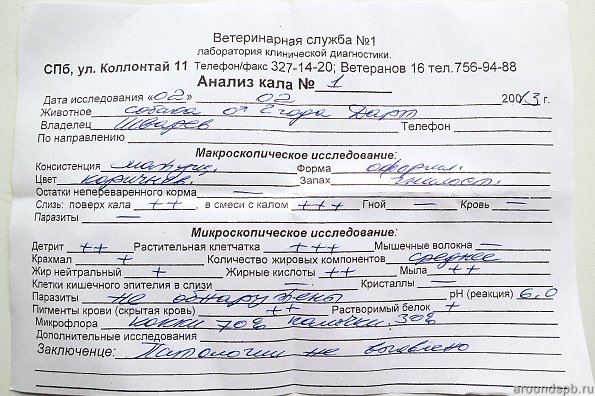 Ветеринарная служба №1
лаборатория клинической диагностики.
СПб, ул. Коллонтай 11 Телефон/факс 327-14-20; Ветеранов 16 тел.756-94-88
Анализ кала № 1
Дата исследования «02» 02 2003 г.
Животное собака от 2 года Дарт
Владелец Шварев Телефон
По направлению
Макроскопическое исследование:
Консистенция Форма оформл.
Цвет коричнев. Запах гнилост.
Остатки непереваренного корма —
Слизь: поверх кала ++ , в смеси с калом +++ Гной — Кровь —
Паразиты —
Микроскопическое исследование:
Детрит ++ Растительная клетчатка +++ Мышечные волокна —
Крахмал + Количество жировых компонентов среднее
Жир нейтральный + Жирные кислоты ++ Мыла ++
Клетки кишечного эпителия в слизи — Кристаллы —
Паразиты не обнаружены pH (реакция) 6,0
Пигменты крови (скрытая кровь) ++ Растворимый белок +
Микрофлора кокки 70% палочки 30%
Дополнительные исследования
Заключение: Патологии не выявлено
aroundspb.ru